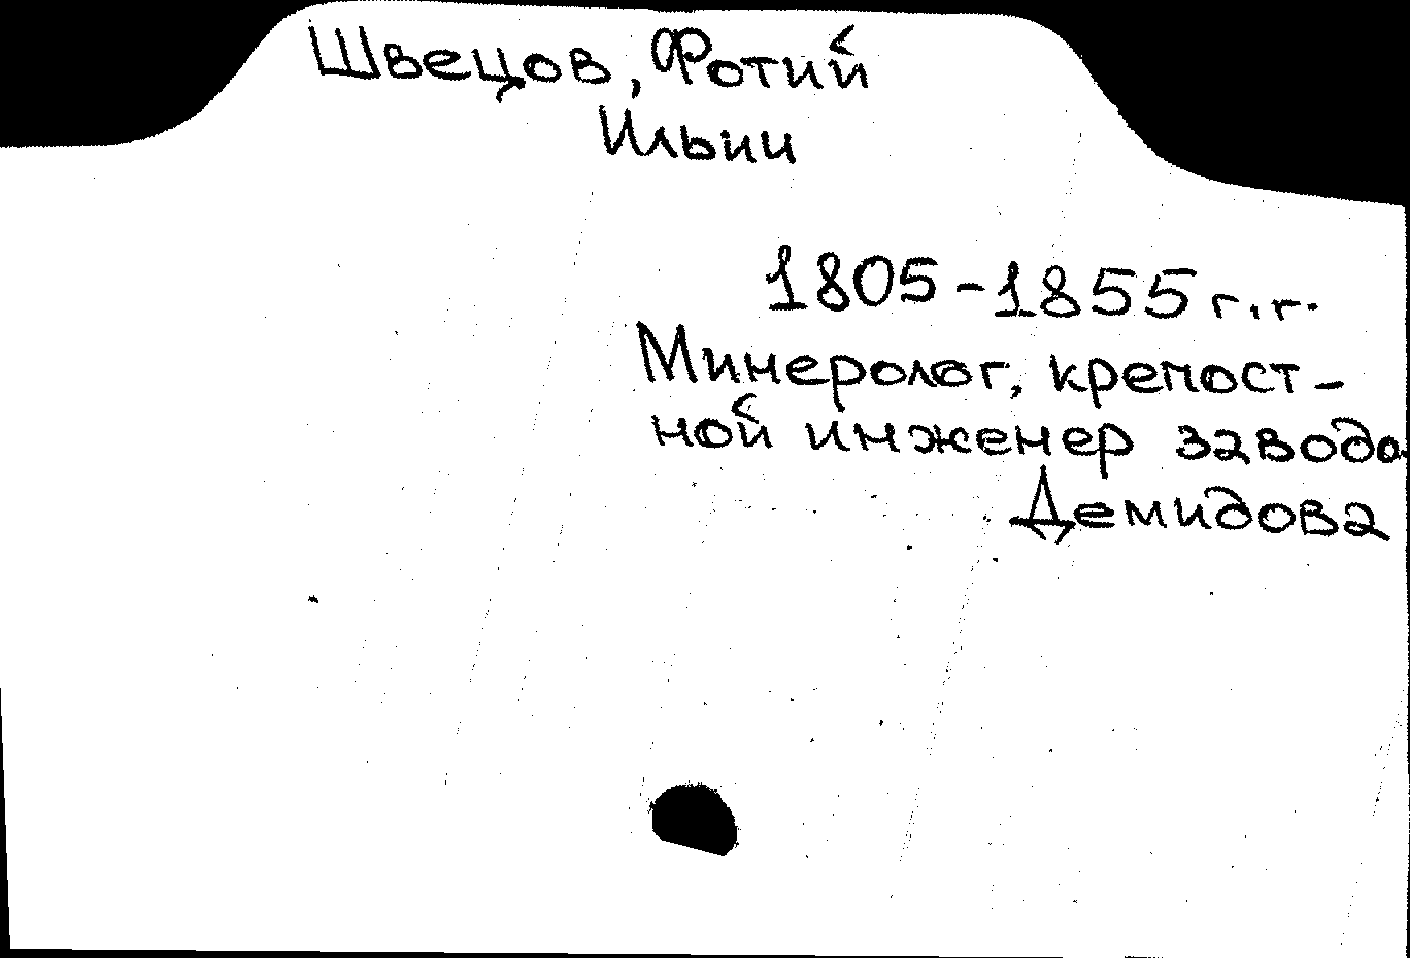 Швецов, Фотий
Ильич
1805-1855 г.г.
Минеролог, крепост-
ной инженер завода
Демидова